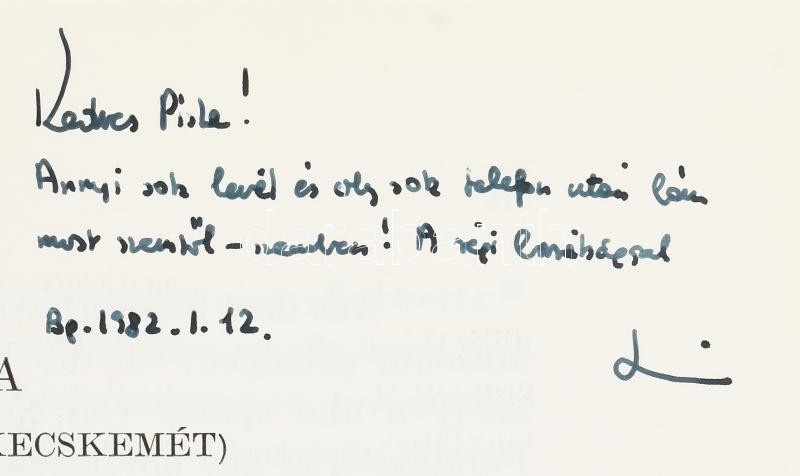 Kedves Pista!
Annyi sok levél és oly sok telefon után lám
most szemtől – szemben! A régi barátsággal
Bp. 1982. 1. 12.
A
KECSKEMÉT)